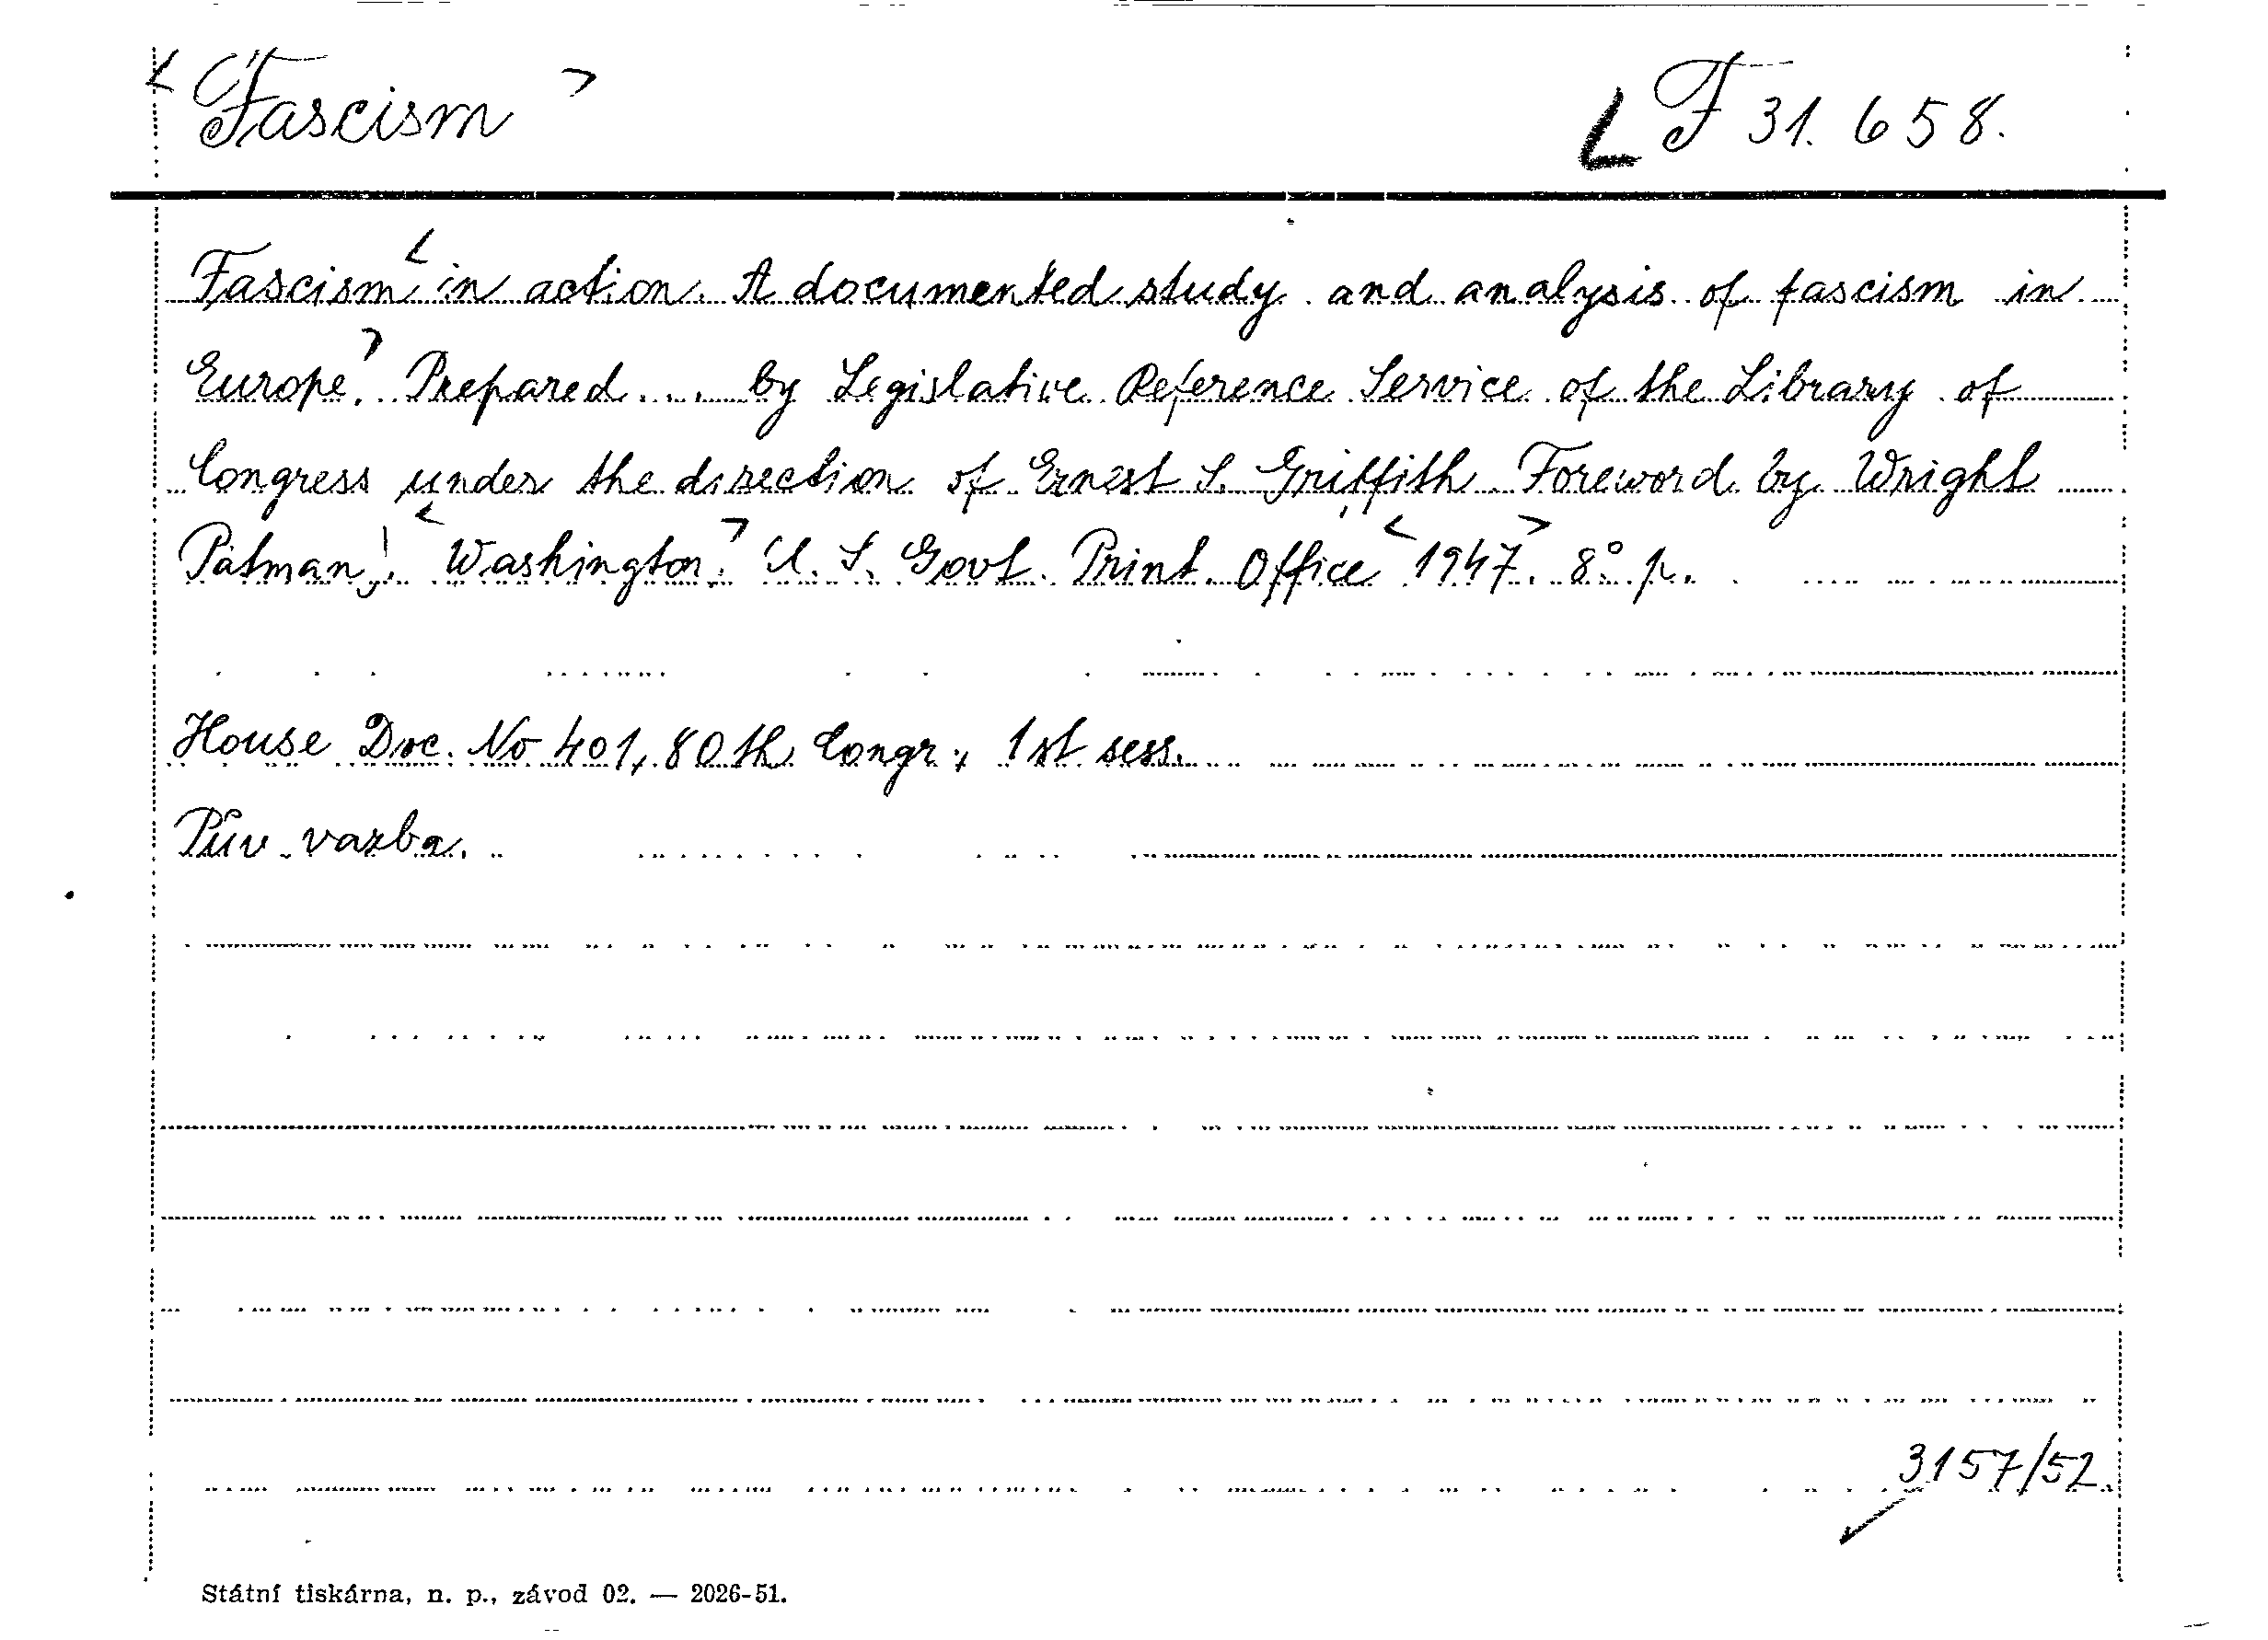 Fascism F 31.658.
Fascism in action. A documented study and analysis of fascism in
Europe. Prepared ... by Legislative Reference Service of the Library of
Congress under the direction of Ernest S. Griffith. Foreword by Wright
Patman. Washington, U. S. Govt. Print. Office 1947. 8° p.
House Doc. No 401, 80th Congr., 1st sess.
Pův. vazba.
3157/52.
Státní tiskárna, n. p., závod 02. — 2026-51.